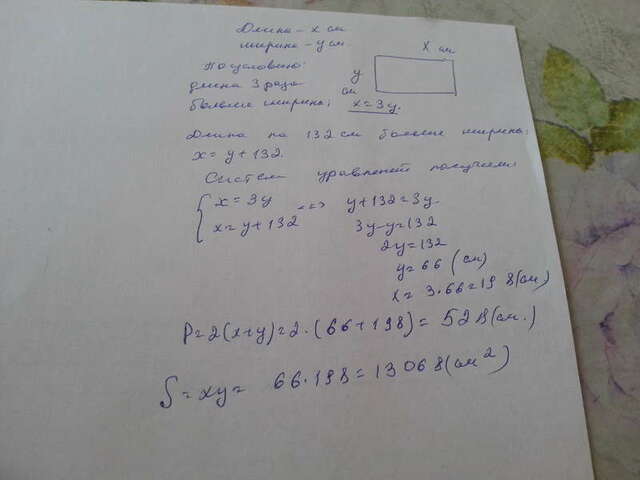 Длина - x см
ширина - y см.
x см
По условию:
y
см
длина 3 раза
больше ширины; x = 3y.
Длина на 132 см больше ширины:
x = y + 132.
Систем уравнений получаем
x = 3y
x = y + 132
==> y + 132 = 3y.
3y - y = 132
2y = 132
y = 66 (см)
x = 3·66 = 198 (см)
P = 2(x+y) = 2·(66+198) = 528 (см.)
S = xy = 66·198 = 13068 (см²)